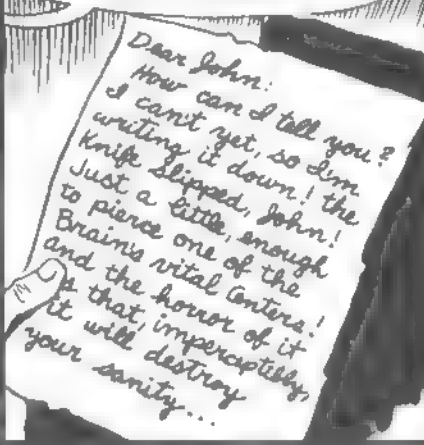 Dear John:
How can I tell you?
I can't yet, so I'm
writing it down! the
Knife slipped, John!
Just a little, enough
to pierce one of the
Brain's vital Centers!
and the horror of it
is that, imperceptibly,
it will destroy
your sanity...